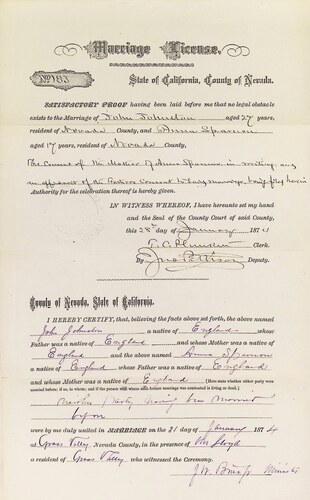 Marriage License.
No. 183
State of California, County of Nevada.
SATISFACTORY PROOF having been laid before me that no legal obstacle
exists to the Marriage of John Johnston aged 27 years,
resident of Nevada County, and Anna
aged 17 years, resident of Nevada County,
The consent of the Mother of Anna in writing, and
an affidavit of the consent to said marriage, being filed herein
Authority for the celebration thereof is hereby given.
IN WITNESS WHEREOF, I have hereunto set my hand
and the Seal of the County Court of said County,
this day of January 187
Clerk.
By Jno Pattison Deputy.
County of Nevada, State of California.
I HEREBY CERTIFY, that, believing the facts above set forth, the above named
John Johnston a native of England whose
Father was a native of England and whose Mother was a native of
England and the above named Anna
a native of England whose Father was a native of England
and whose Mother was a native of England (Here state whether either party
were married before, or if
Neither Party having been Married
before
were by me duly united in MARRIAGE on the 31 day of January 1874
at Grass Valley Nevada County, in the presence of Lloyd
a resident of Grass Valley who witnessed the Ceremony.
J. W. Minister